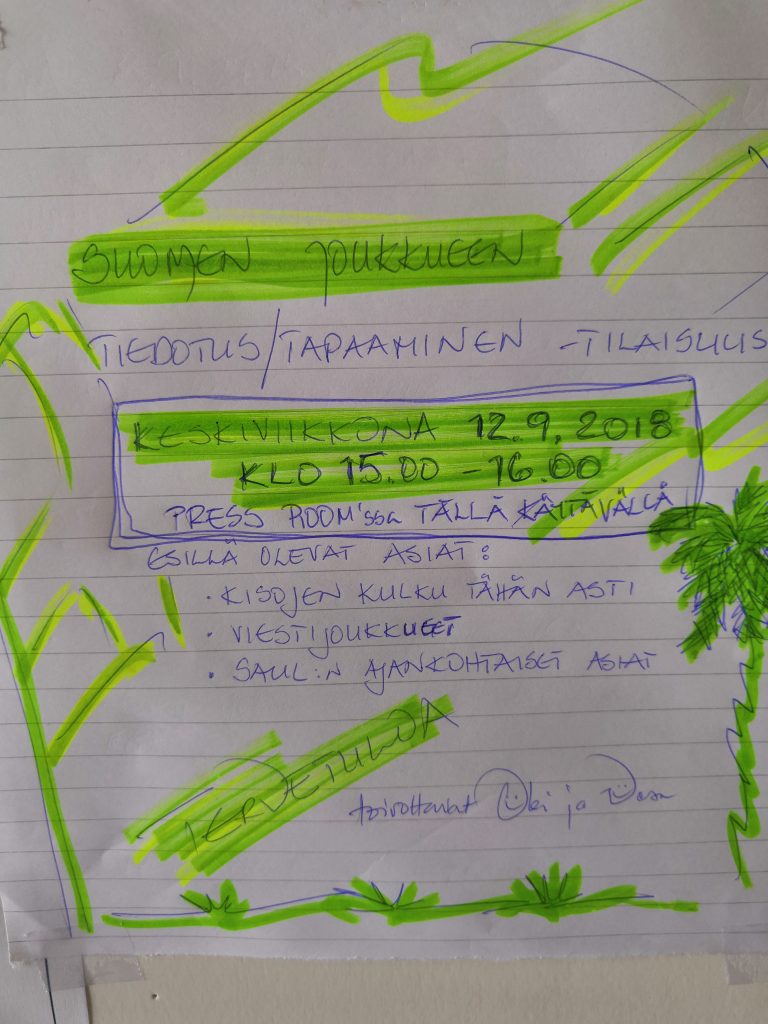 SUOMEN JOUKKUEEN
TIEDOTUS/TAPAAMINEN -TILAISUUS
KESKIVIIKKONA 12.9.2018
KLO 15.00 -16.00
PRESS ROOM'ssa TÄLLÄ KÄYTÄVÄLLÄ
ESILLÄ OLEVAT ASIAT:
· KISOJEN KULKU TÄHÄN ASTI
· VIESTIJOUKKUEET
· SAUL:N AJANKOHTAISET ASIAT
TERVETULOA
toivottavat ja